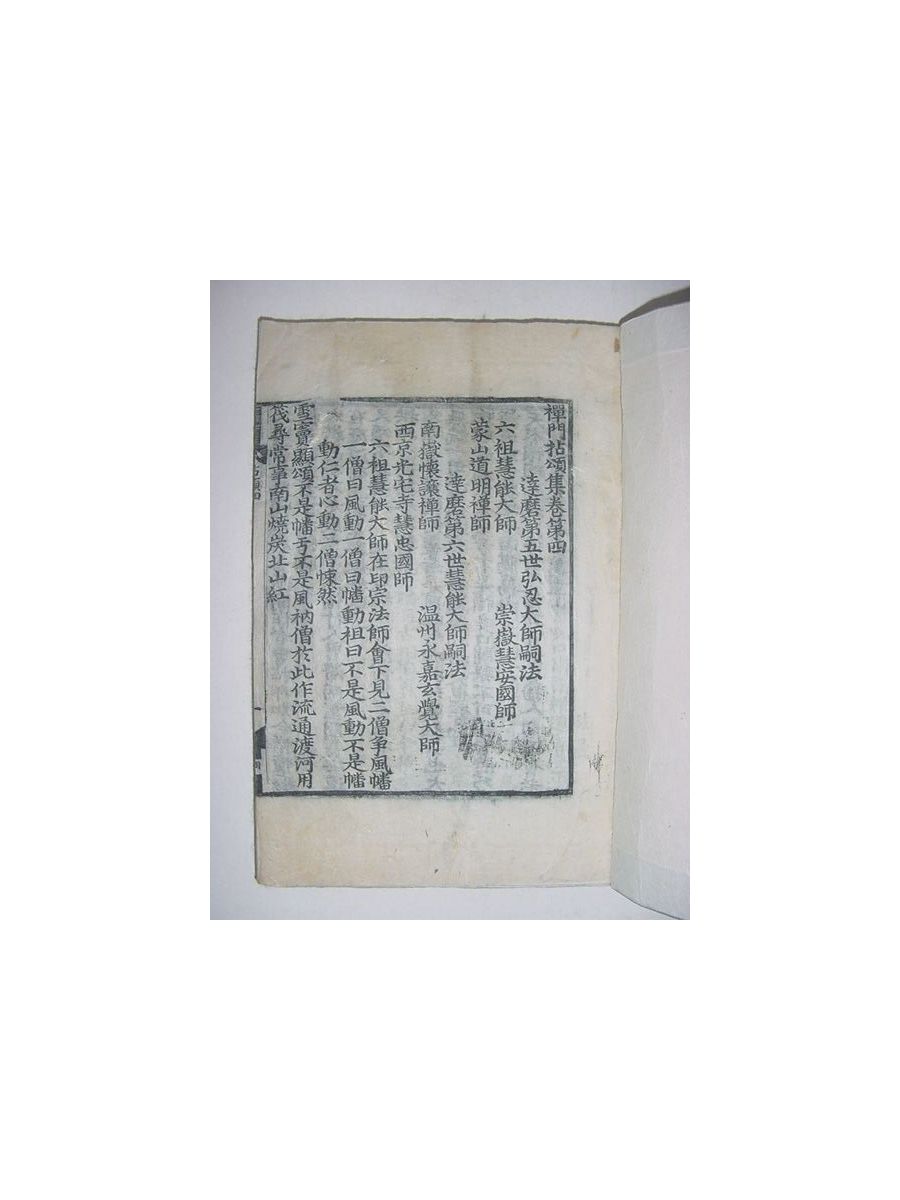 禪門拈頌集卷第四
達磨第五世弘忍大師嗣法
六祖慧能大師 崇嶽慧安國師
蒙山道明禪師
達磨第六世慧能大師嗣法
南嶽懷讓禪師 温州永嘉玄覺大師
西京光宅寺慧忠國師
六祖慧能大師在印宗法師會下見二僧爭風幡
一僧曰風動一僧曰幡動祖曰不是風動不是幡
動仁者心動二僧悚然
雪竇顯頌不是幡兮不是風衲僧於此作流通渡河用
筏尋常事南山燒炭北山紅